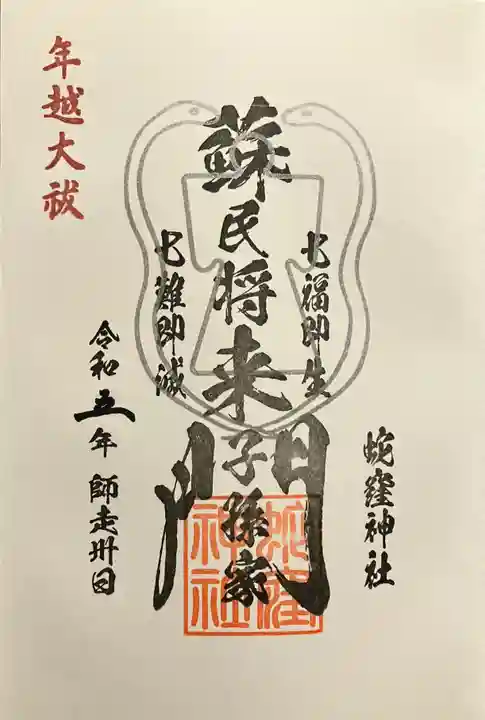 年越大祓
七福即生
蘇民将来子孫家門
七難即滅
蛇窪神社
令和五年 師走卅日
蛇窪
神社